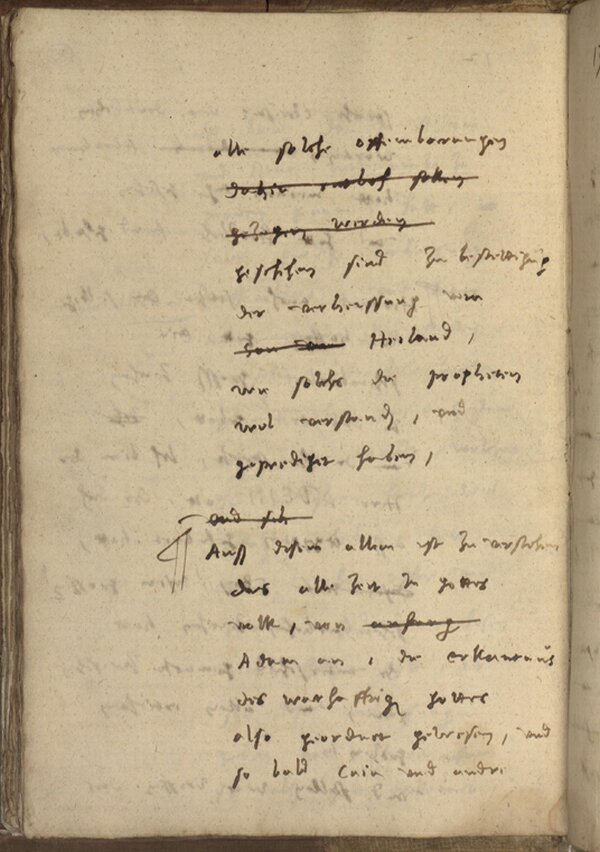 alle solche offenbarungen
dahin
gezogen werden
geschehen sind zu bestettigung
der verheissung vom
Heiland,
wie solchs die propheten
wol verstanden, und
geprediget haben,
und sich
¶ Auss disem allem ist zu verstehen
das alle zeit in gottes
volk, von anfang
Adam an, die erkantnus
des warhafftigen gottes
also geordnet gewesen, und
so bald Cain und andre